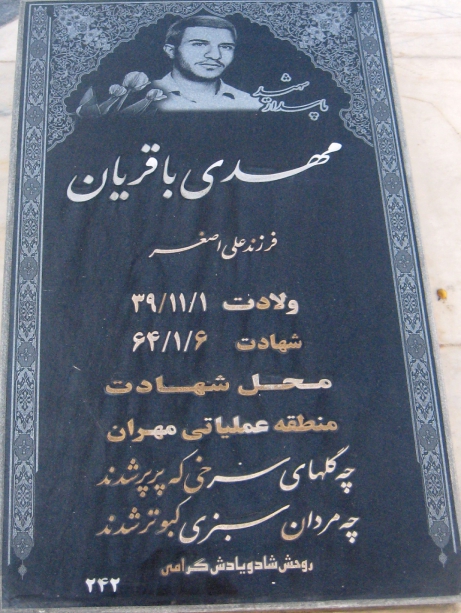 شهید
پاسدار
مهدی باقریان
فرزند علی اصغر
ولادت ۳۹/۱۱/۱
شهادت ۶۴/۱/۶
محل شهادت
منطقه عملیاتی مهران
چه گلهای سرخی که پرپر شدند
چه مردان سبزی کبوتر شدند
روحش شاد و یادش گرامی
۲۴۲